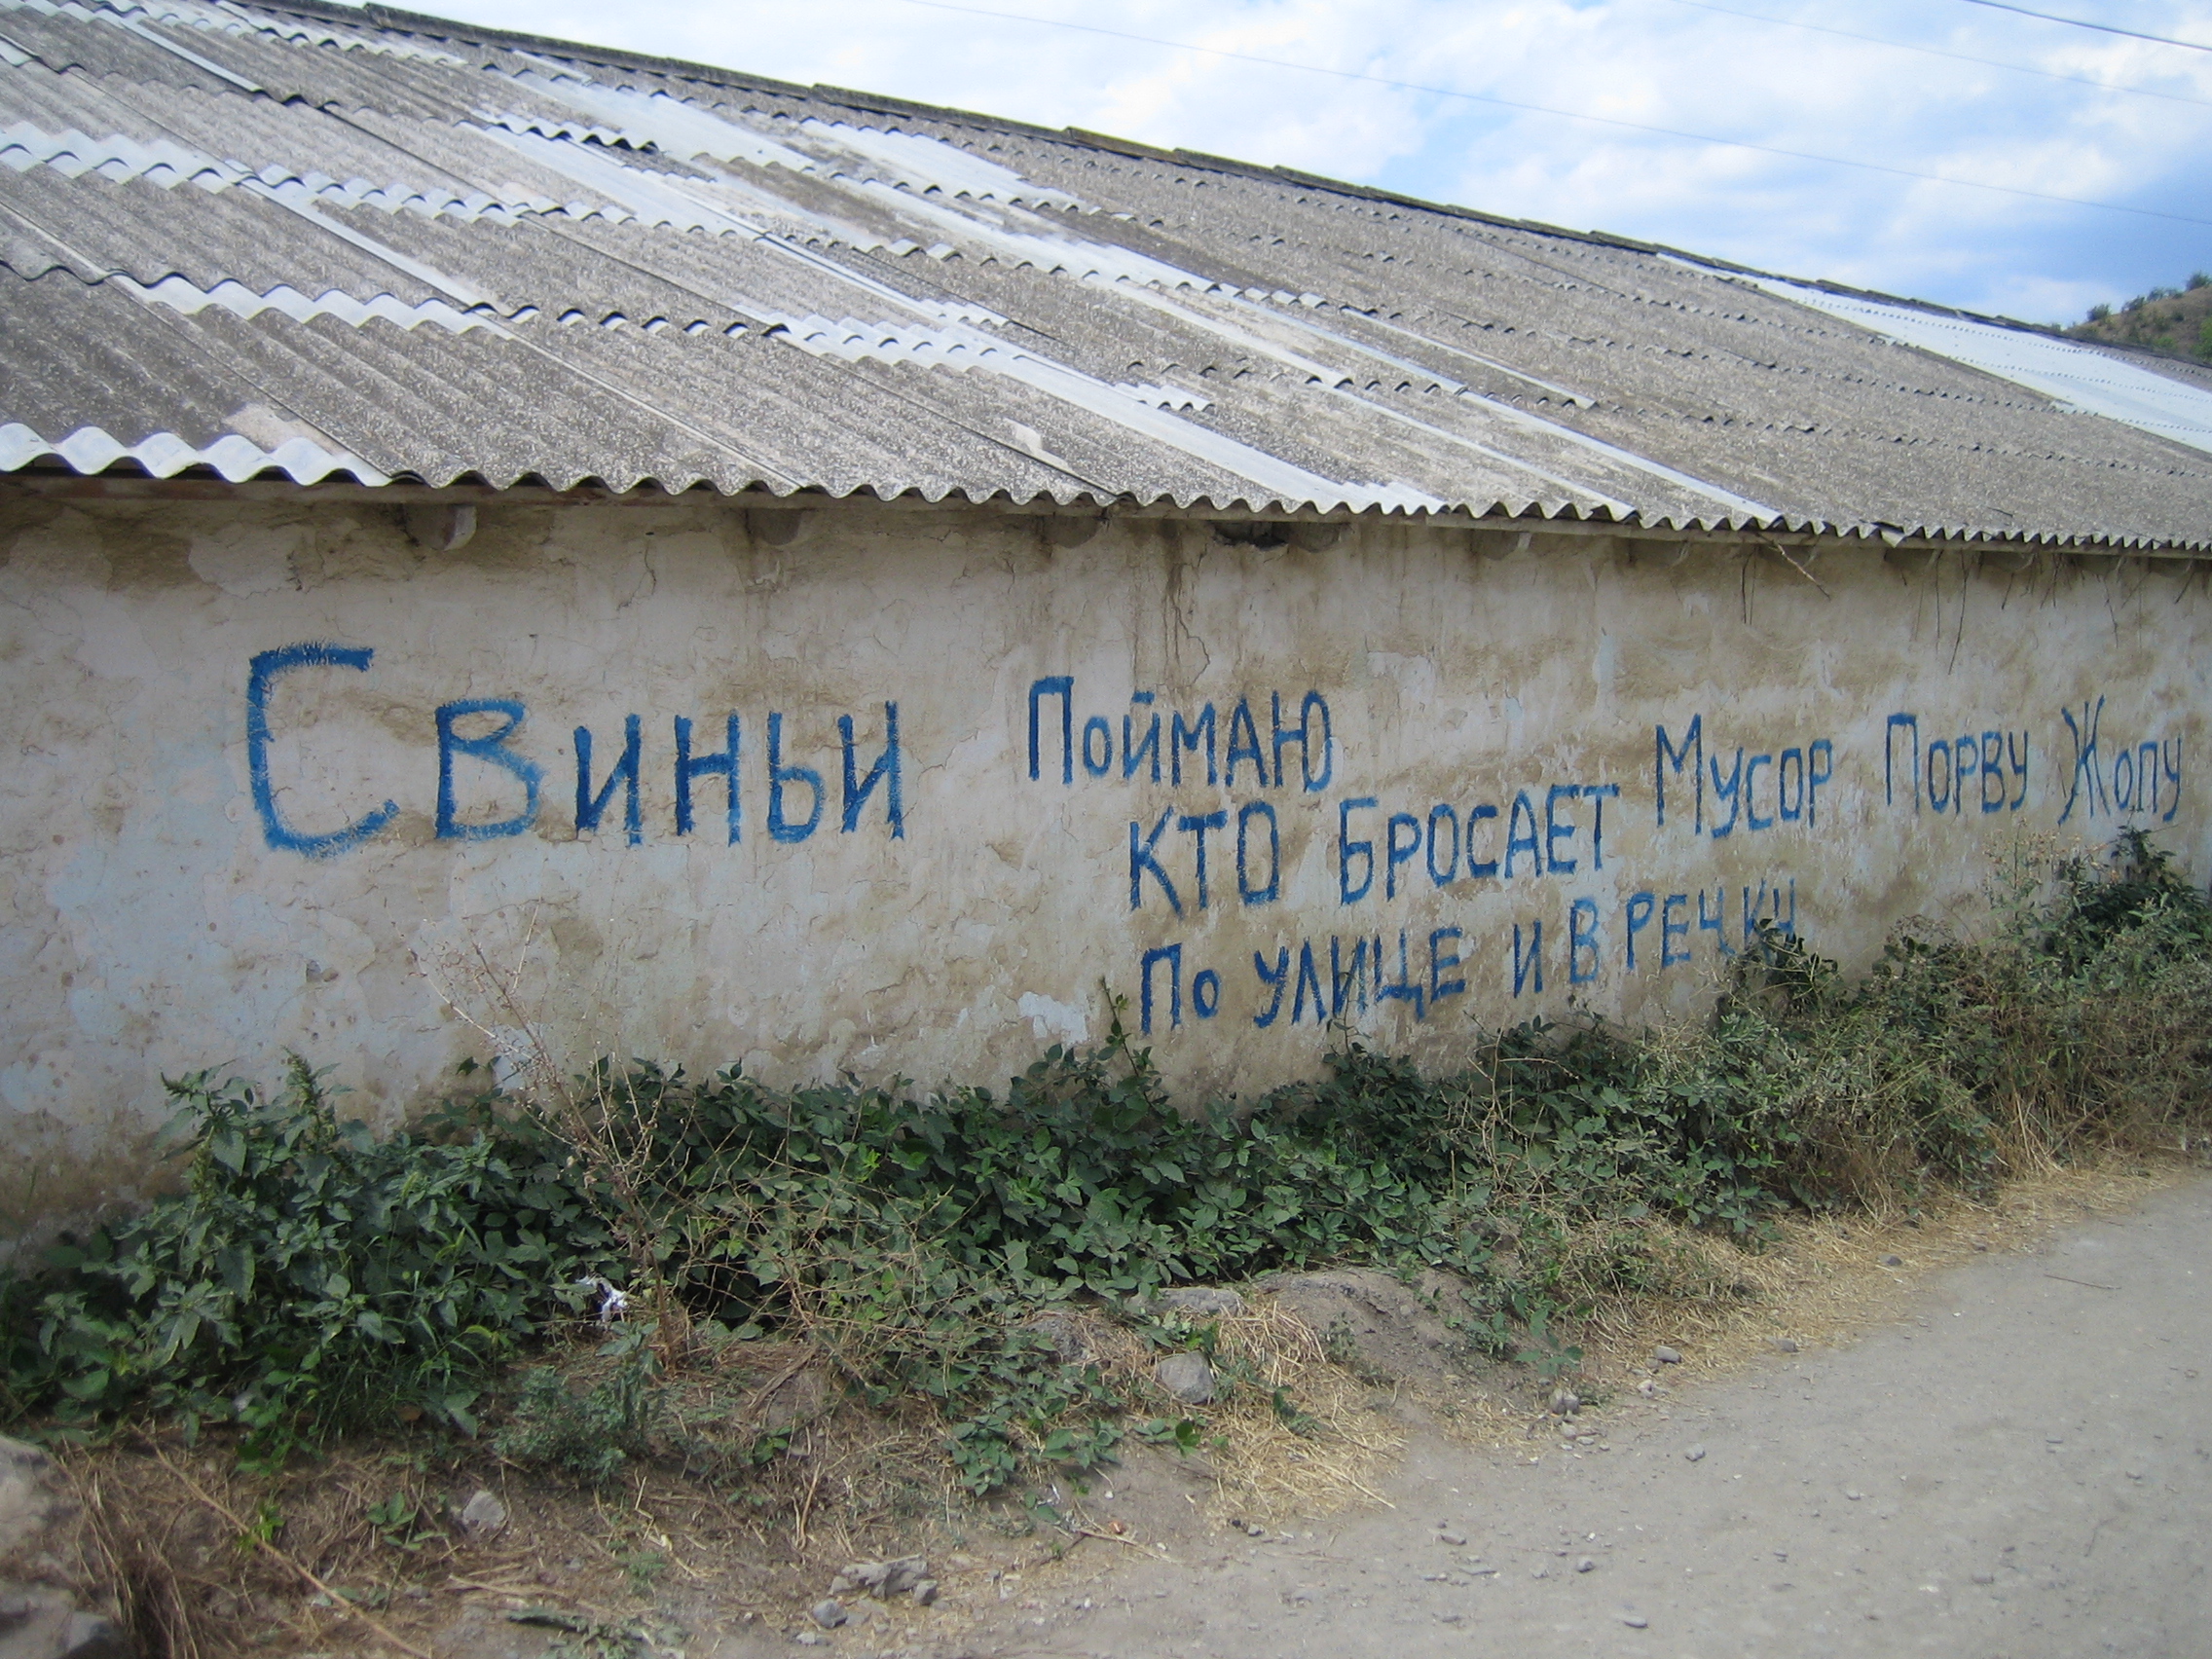 Свиньи Поймаю
кто бросает Мусор Порву Жопу
По улице и в речку